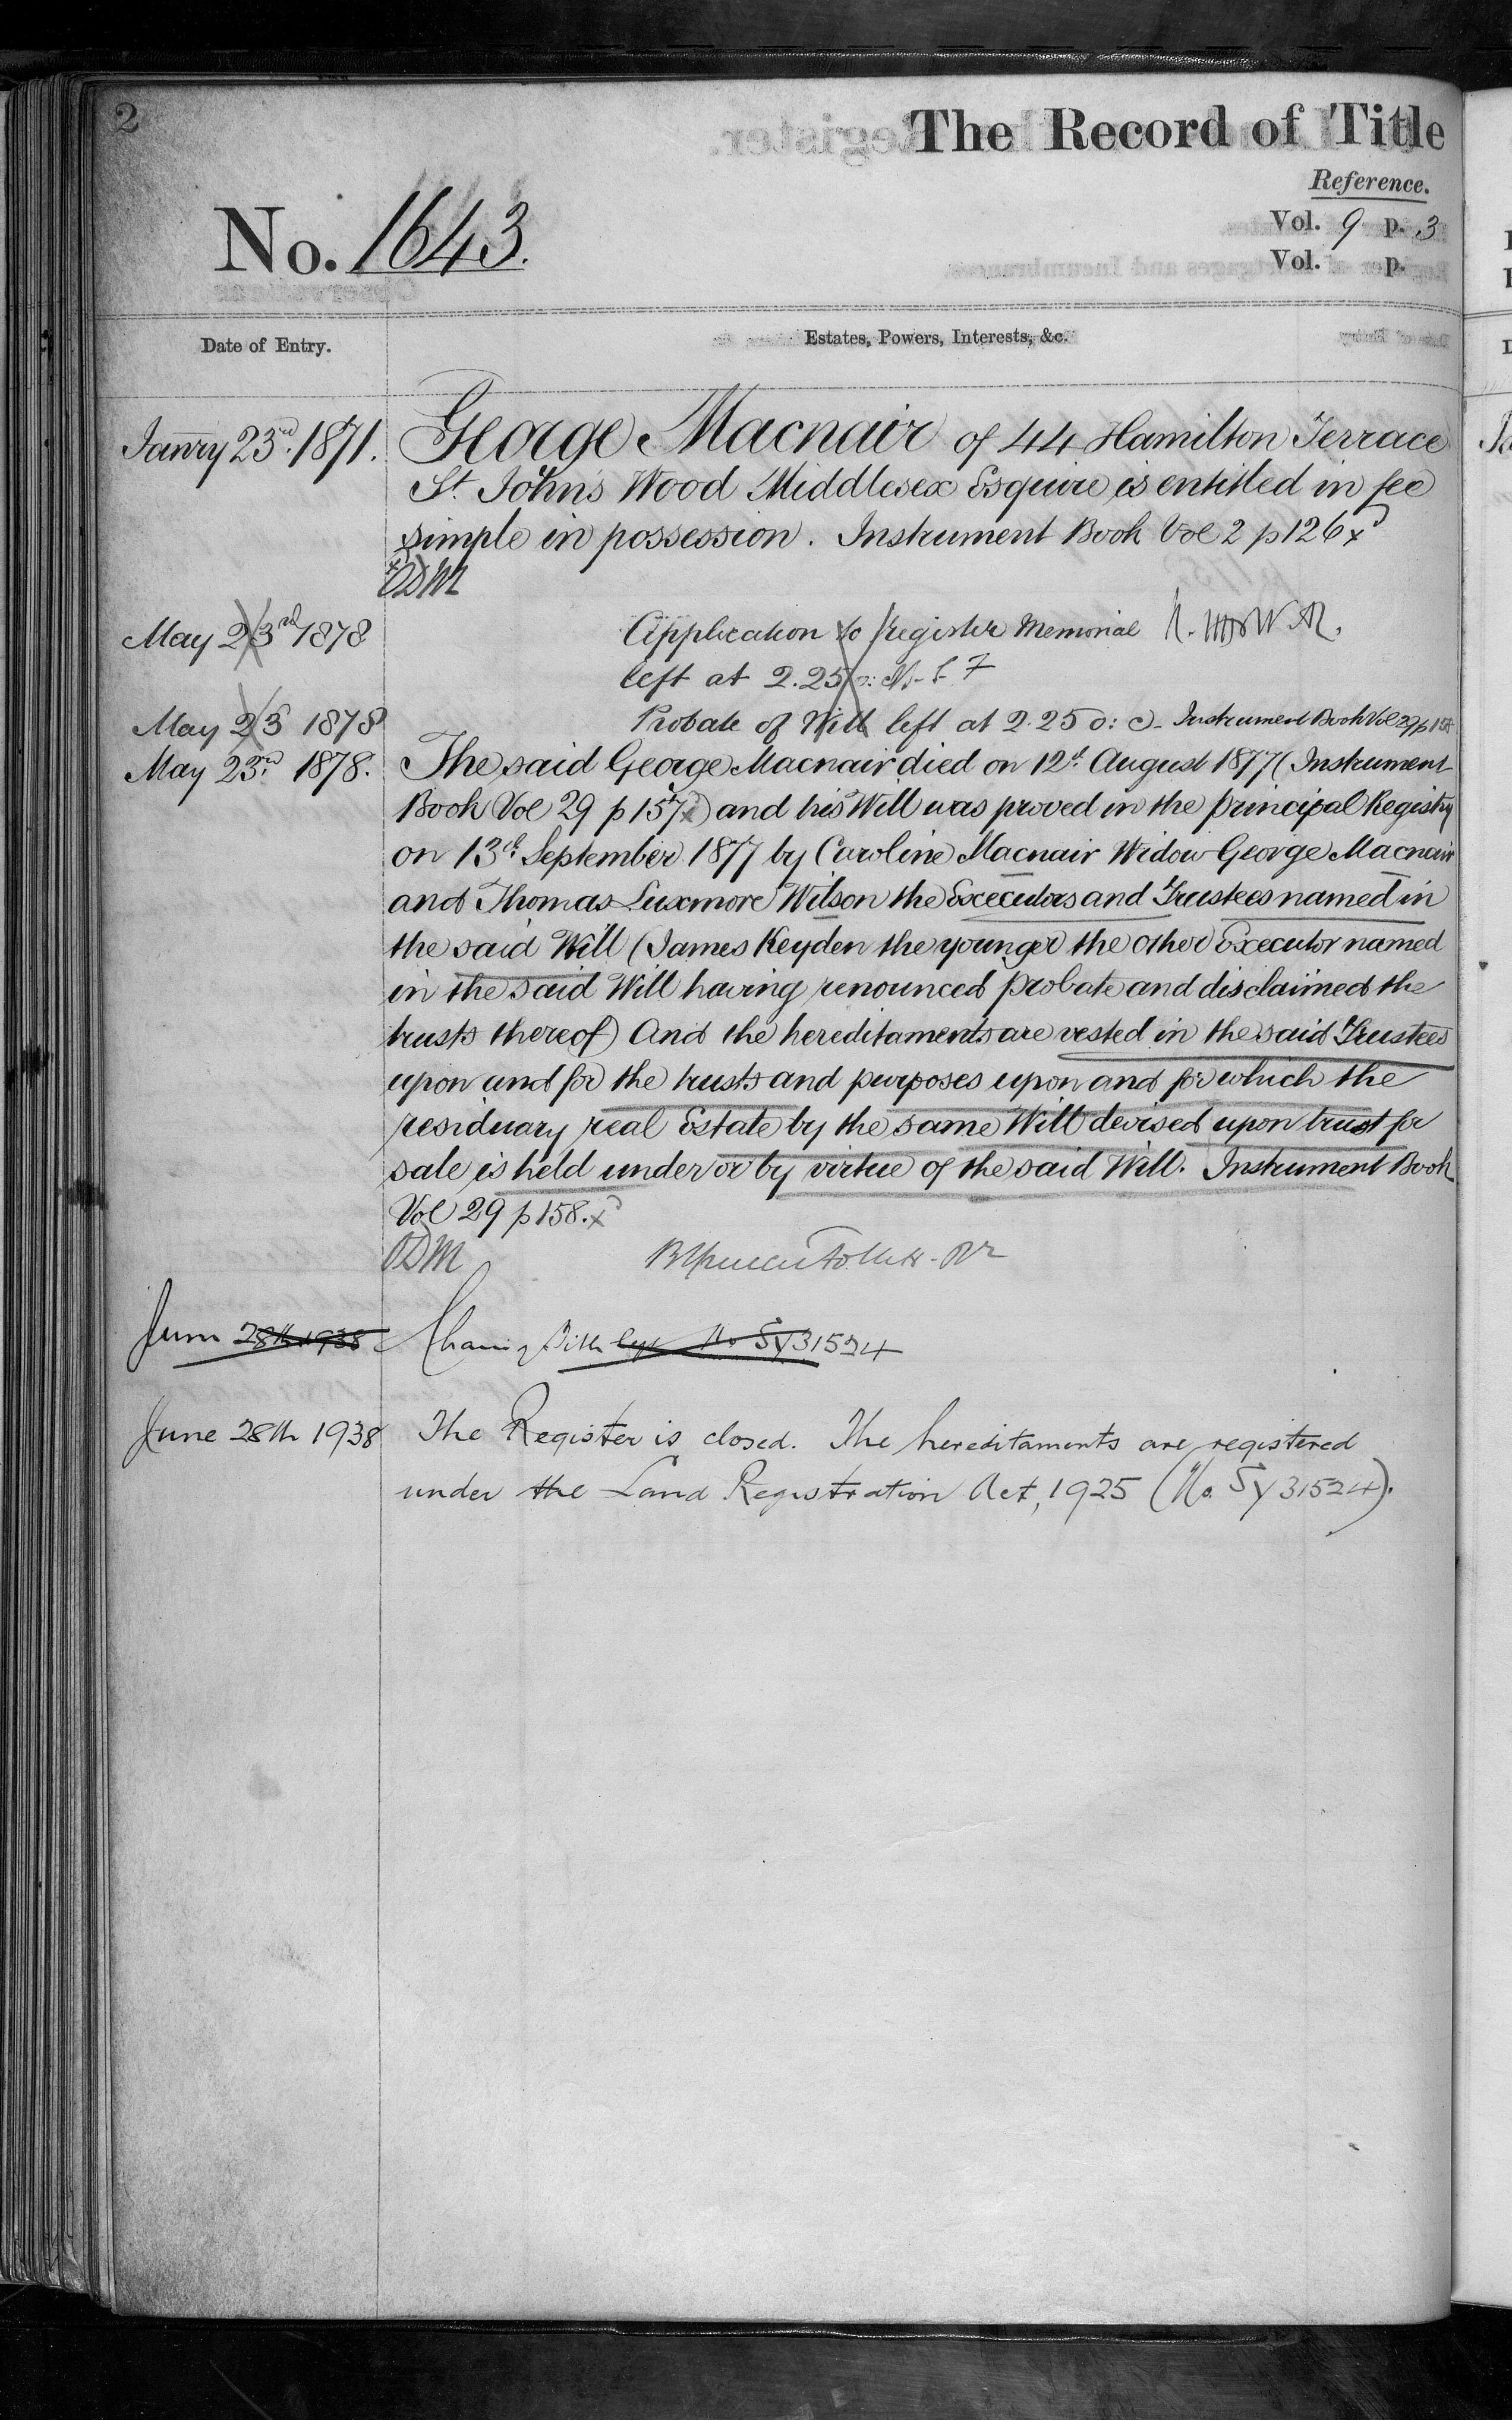 2
The Record of Title
Reference.
No. 1643.
Vol. 9 p. 3
Vol. p.
Date of Entry.
Estates, Powers, Interests, &c.
Janry 23rd. 1871.
George Macnair of 44 Hamilton Terrace
St. John's Wood Middlesex Esquire is entitled in fee
simple in possession. Instrument Book Vol 2 p 126 x
May 23rd 1878
Application to Register Memorial
left at 2.25
May 23 1878
Probate of Will left at 2.25 Instrument Book Vol 29 p 157
May 23rd. 1878.
The said George Macnair died on 12th August 1877 (Instrument
Book Vol 29 p 157) and his Will was proved in the principal Registry
on 13th September 1877 by Caroline Macnair Widow George Macnair
and Thomas Luxmore Wilson the Executors and Trustees named in
the said Will (James Keyden the younger the other Executor named
in the said Will having renounced probate and disclaimed the
trusts thereof) And the hereditaments are vested in the said Trustees
upon and for the trusts and purposes upon and for which the
residuary real Estate by the same Will devised upon trust for
sale is held under or by virtue of the said Will. Instrument Book
Vol 29 p 158. x
June 28th 1938
No SY31524
June 28th 1938
The Register is closed. The hereditaments are registered
under the Land Registration Act, 1925 (No. SY 31524).